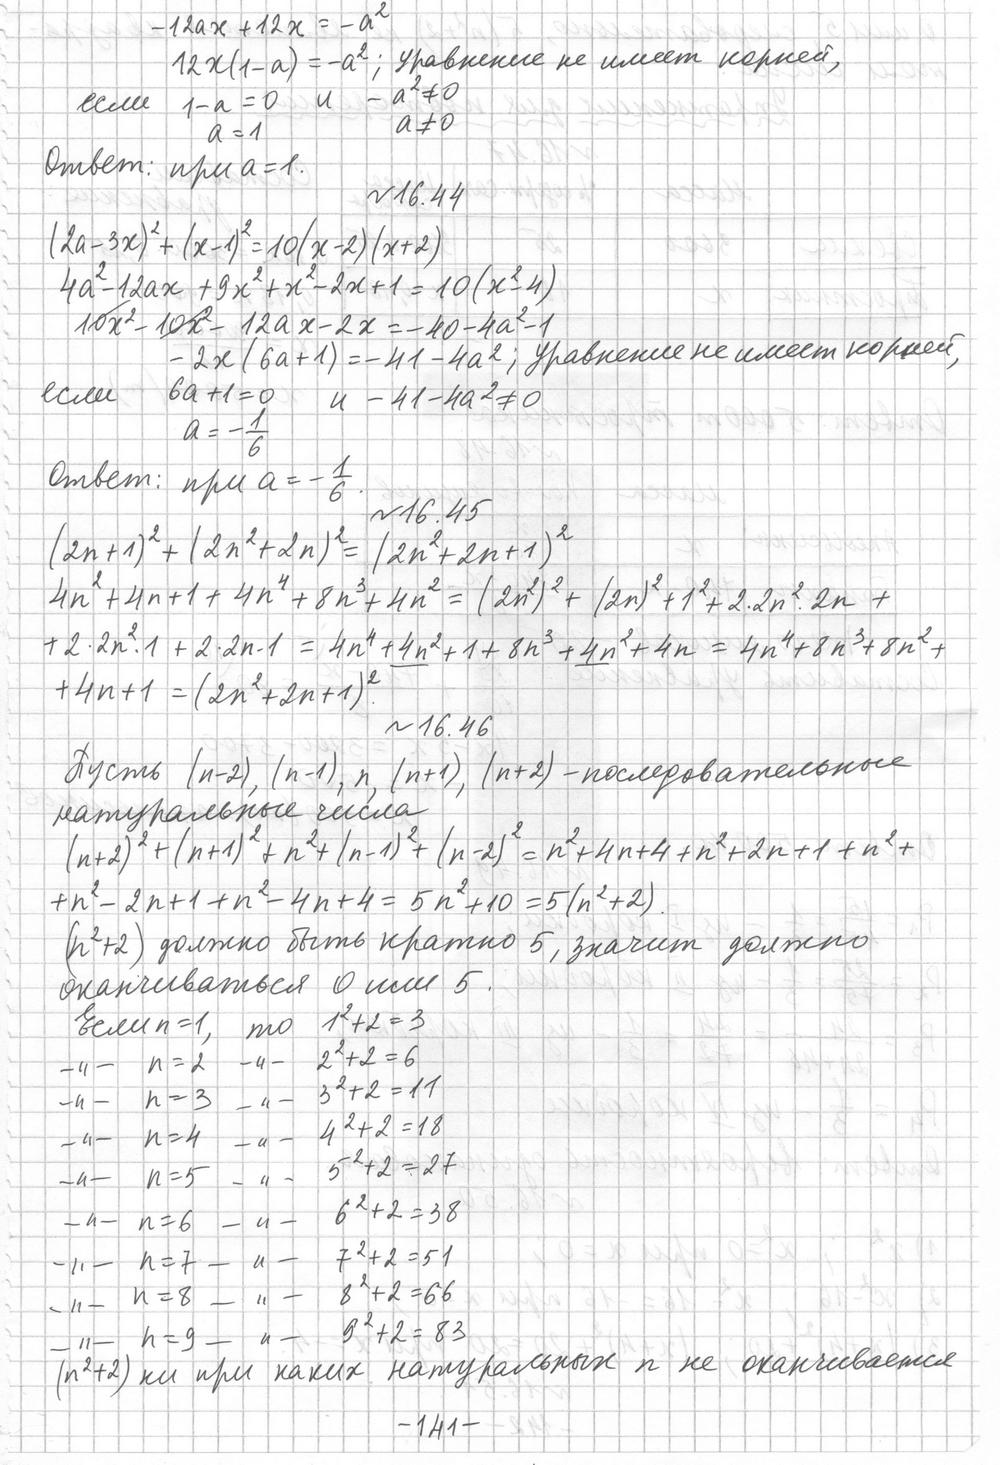 -12ax + 12x = -a²
12x(1-a) = -a²; уравнение не имеет корней,
если 1-a = 0 и -a² ≠ 0
a = 1 a ≠ 0
Ответ: при a = 1.
~16.44
(2a-3x)² + (x-1)² = 10(x-2)(x+2)
4a² - 12ax + 9x² + x² - 2x + 1 = 10(x²-4)
10x² - 10x² - 12ax - 2x = -40 - 4a² - 1
-2x(6a+1) = -41 - 4a²; уравнение не имеет корней,
если 6a+1 = 0 и -41-4a² ≠ 0
a = -1/6
Ответ: при a = -1/6.
~16.45
(2n+1)² + (2n²+2n)² = (2n²+2n+1)²
4n² + 4n + 1 + 4n⁴ + 8n³ + 4n² = (2n²)² + (2n)² + 1² + 2·2n²·2n +
+ 2·2n²·1 + 2·2n·1 = 4n⁴ + 4n² + 1 + 8n³ + 4n² + 4n = 4n⁴ + 8n³ + 8n² +
+ 4n + 1 = (2n²+2n+1)².
~16.46
Пусть (n-2), (n-1), n, (n+1), (n+2) - последовательные
натуральные числа
(n+2)² + (n+1)² + n² + (n-1)² + (n-2)² = n² + 4n + 4 + n² + 2n + 1 + n² +
+ n² - 2n + 1 + n² - 4n + 4 = 5n² + 10 = 5(n²+2).
(n²+2) должно быть кратно 5, значит должно
оканчиваться 0 или 5.
Если n = 1, то 1²+2 = 3
-"- n = 2 -"- 2²+2 = 6
-"- n = 3 -"- 3²+2 = 11
-"- n = 4 -"- 4²+2 = 18
-"- n = 5 -"- 5²+2 = 27
-"- n = 6 -"- 6²+2 = 38
-"- n = 7 -"- 7²+2 = 51
-"- n = 8 -"- 8²+2 = 66
-"- n = 9 -"- 9²+2 = 83
(n²+2) ни при каких натуральных n не оканчивается
-141-